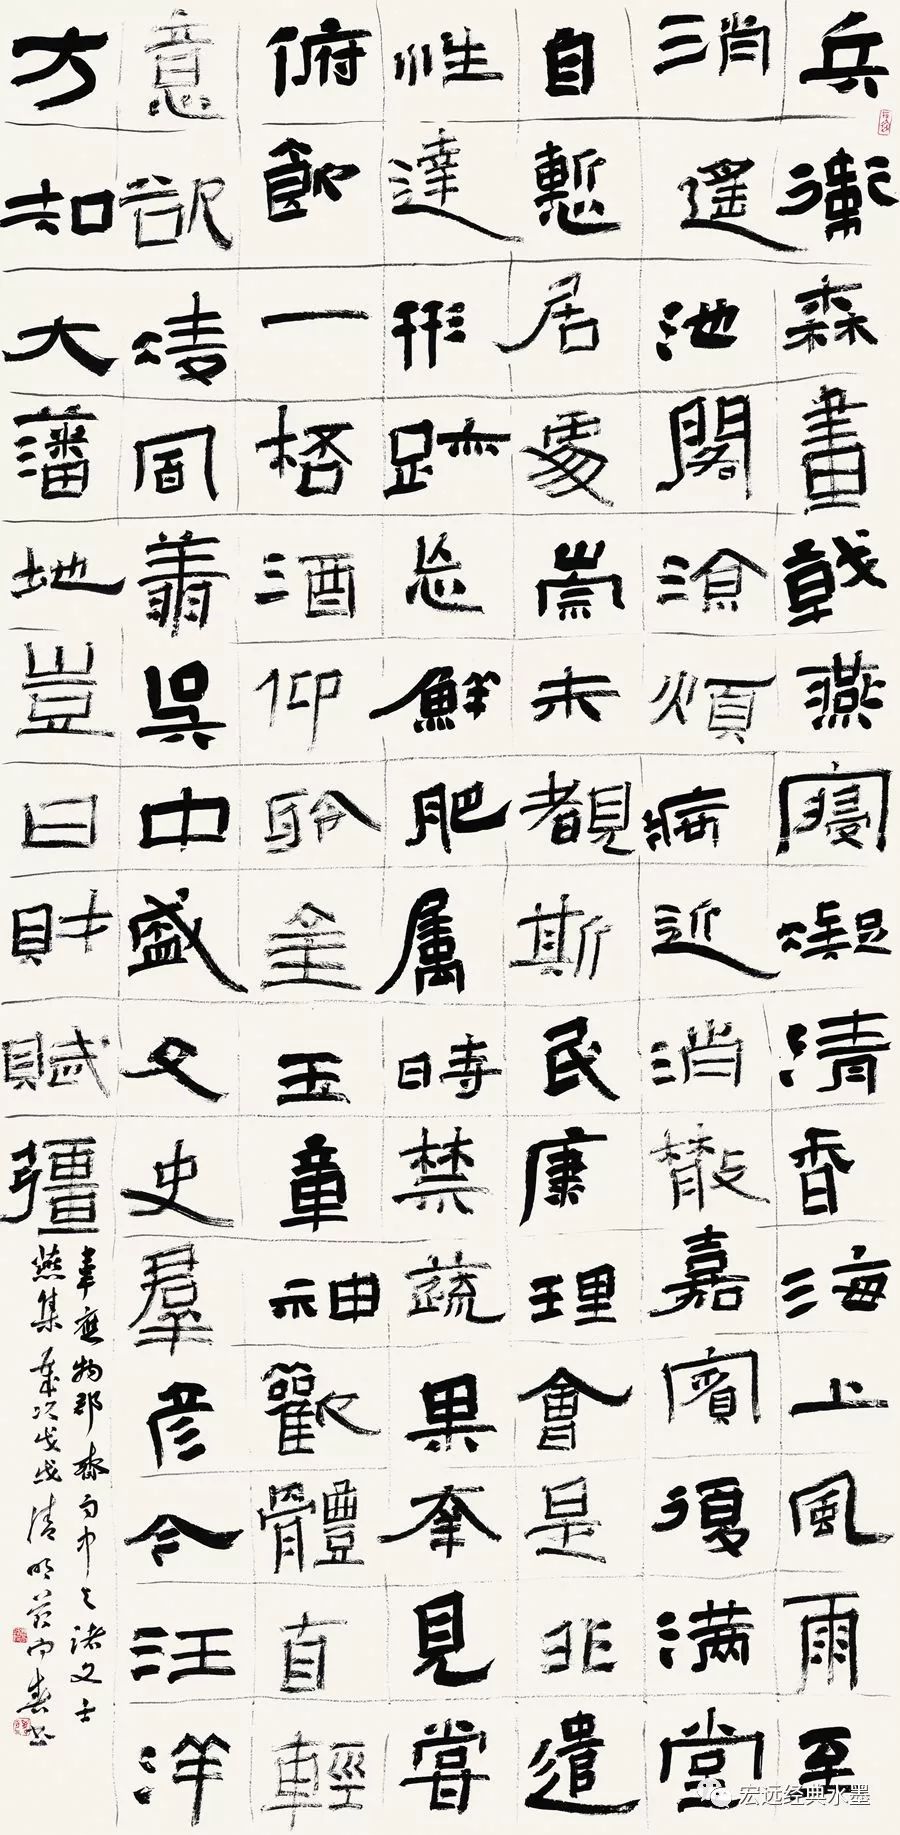 兵衞森畫戟燕寢凝清香海上風雨至
消遙池閣涼煩病近消散嘉賓復滿堂
自慙居處崇未覩斯民康理會是非遣
性達形跡忘鮮肥屬時禁蔬果幸見嘗
俯飲一桮酒仰聆金玉章神歡體自輕
意欲凌風翔吳中盛文史羣彥今汪洋
方知大藩地豈曰財賦彊
韋應物郡齋雨中与諸文士
燕集歲次戊戌清明
宏远经典水墨